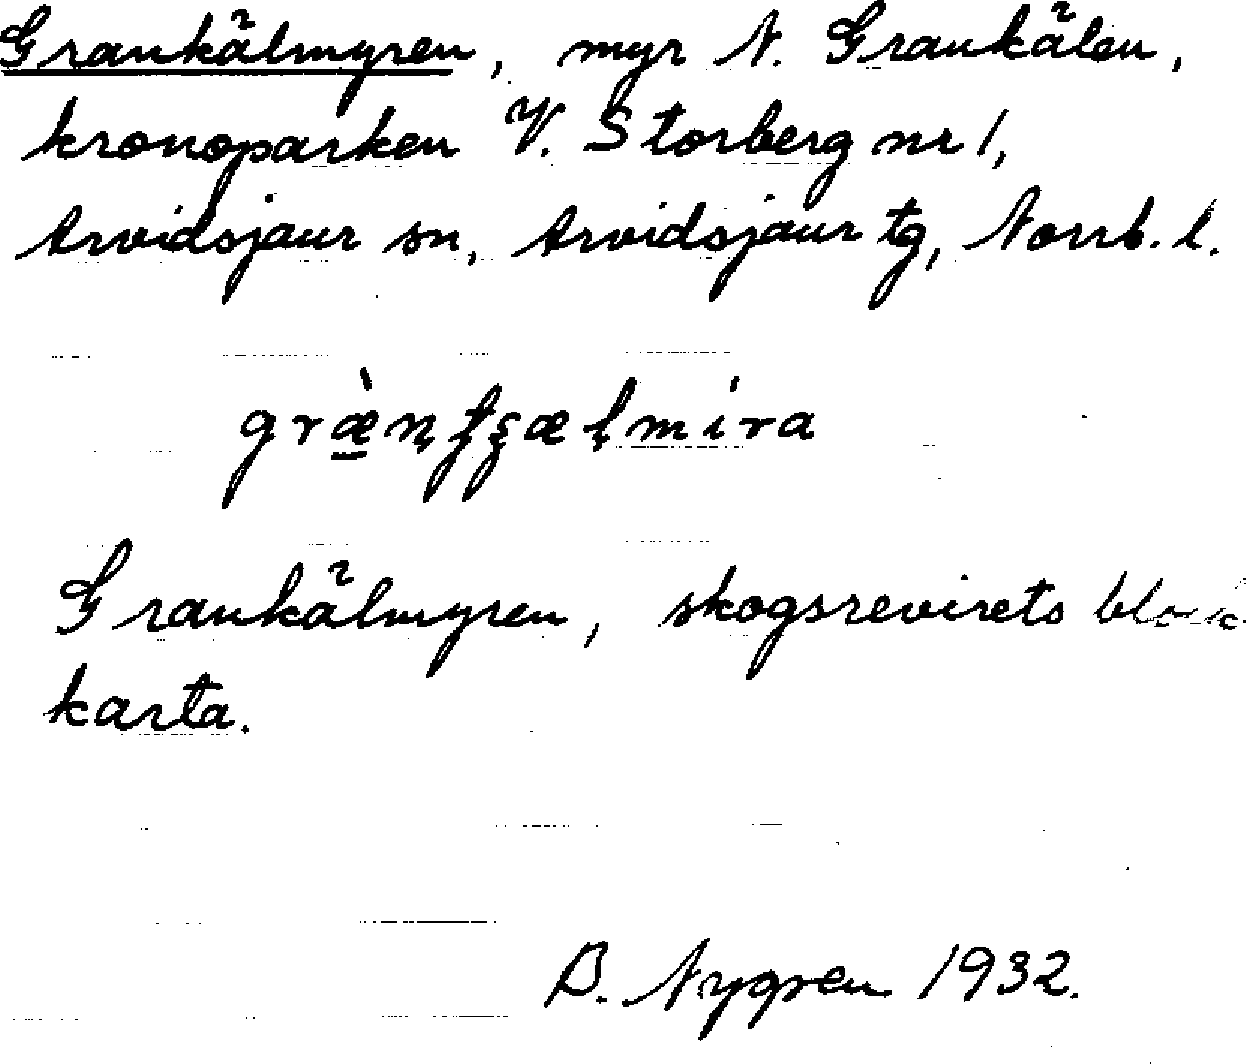 Grankälmyren, myr N. Grankälen,
kronoparken V. Storberg nr 1,
Arvidsjaur sn, Arvidsjaur tg, Norrb. l.
Grankälmyren, skogsrevirets
karta.
B. Nygren 1932.